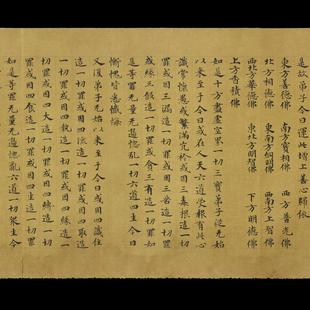 是故弟子今日運此增上善心歸依
東方善德佛 南方寶相佛 西方普光佛
北方相德佛 東南方網明佛 西南方上智佛
西北方華德佛 東北方明智佛 下方明德佛
上方香積佛
如是十方盡虛空界一切三寶弟子從无始
以來至于今日或在人天六道受報有此心
識常懷愚惑繁滿胷衿或因三毒根造一切
罪或因三漏造一切罪或因三苦造一切罪
或緣三倒造一切罪或貪三有造一切罪如
是等罪无量无邊惱亂一切六道四生今日
慚愧皆悉懺悔
又復弟子无始以來至于今日或因四識住
造一切罪或因四流造一切罪或因四取造
一切罪或因四執造一切罪或因四緣造一
切罪或因四大造一切罪或因四縛造一切
罪或因四食造一切罪或因四生造一切罪
如是等罪无量无邊惱亂六道一切眾生今